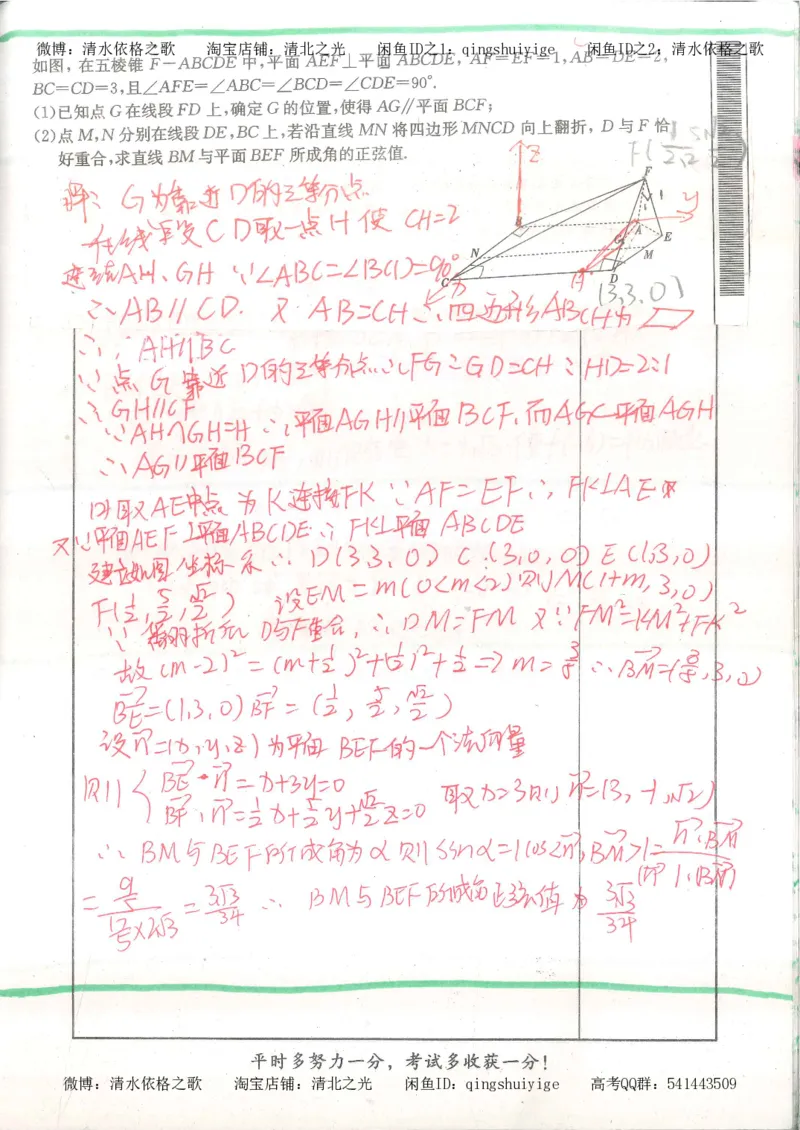 微博：清水依格之歌 淘宝店铺：清北之光 闲鱼ID之1：qingshuiyige 闲鱼ID之2：清水依格之歌
如图，在五棱锥 F－ABCDE 中，平面 AEF⊥平面 ABCDE，AF＝EF＝1，AB＝DE＝2，
BC＝CD＝3，且∠AFE＝∠ABC＝∠BCD＝∠CDE＝90°.
(1)已知点 G 在线段 FD 上，确定 G 的位置，使得 AG∥平面 BCF；
(2)点 M，N 分别在线段 DE，BC 上，若沿直线 MN 将四边形 MNCD 向上翻折，D 与 F 恰
好重合，求直线 BM 与平面 BEF 所成角的正弦值.
z
F
y
B
A
G
E
N
M
H
D
C
x
(3,3,0)
解：G为靠近D的三等分点
在线段CD取一点H使 CH=2
连结AH、GH ∵∠ABC=∠BCD=90°
∴AB//CD. 又 AB=CH ∴四边形ABCH为▱
∴AH//BC
∵点G靠近D的三等分点∴FG:GD=CH:HD=2:1
∴GH//CF
∵AH∩GH=H ∴平面AGH//平面BCF,而AG⊂平面AGH
∴AG//平面BCF
(2)取AE中点为K连接FK ∵AF=EF∴FK⊥AE
又∵平面AEF⊥平面ABCDE∴FK⊥平面ABCDE
建立如图坐标系∴D(3,3,0) C(3,0,0) E(1,3,0)
F(1/2, 5/2, √2/2) 设EM=m(0<m<2)则M(1+m,3,0)
∵翻折后D与F重合,∴DM=FM 又∵FM²=KM²+FK²
故(m-2)²=(m+1/2)²+(1/2)²+1/2⇒m=3/5 ∴BM=(8/5,3,0)
BE=(1,3,0) BF=(1/2, 5/2, √2/2)
设n=(x,y,z)为平面BEF的一个法向量
则{BE·n=x+3y=0
BF·n=1/2x+5/2y+√2/2z=0 取x=3则n=(3,-1,√2)
∴BM与BEF所成角为α则sinα=|cos<n,BM>|=n·BM/|n|·|BM|
=9/5/17/5×2√3=3√3/34 ∴BM与BEF所成角正弦值为3√3/34
平时多努力一分，考试多收获一分！
微博：清水依格之歌 淘宝店铺：清北之光 闲鱼ID：qingshuiyige 高考QQ群：541443509